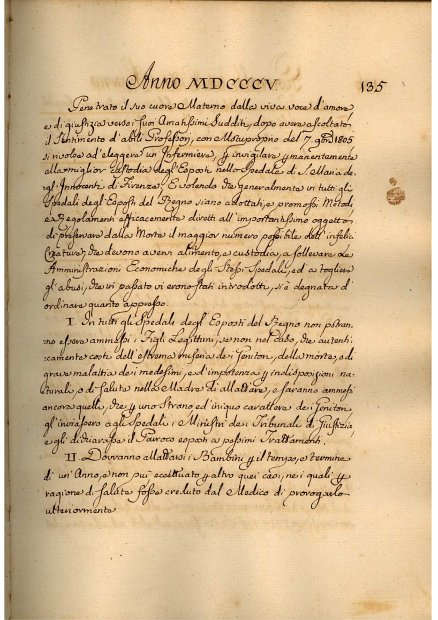 Anno MDCCCV. 135
Penetrato il suo cuore Materno dalle vive voce d'amore
e di giustizia verso i suoi Amatissimi Sudditi, dopo avere ascoltato
il Sentimento d'abili Professori, con Motuproprio del 7. 9bre 1805
si volse ad eleggere un Infermiere invigilare permanentemente
alla miglior custodia degl'Esposti nello Spedale di S. Maria degl'
Innocenti di Firenze. E volendo che generalmente in tutti gli
Spedali degl'Esposti del Regno siano adottati, e promossi Metodi
e Regolamenti efficacemente diretti all'importantissimo oggetto
di preservare dalla Morte il maggior numero possibile dell'infelici
Creature, che devono avervi alimento, e custodia, a sollevare le
Amministrazioni Economiche degli Stessi Spedali, ed a togliere
gl'abusi, che in passato vi erono stati introdotti, si è degnata d'
ordinare quanto appresso.
I. In tutti gli Spedali degl'Esposti del Regno non potran-
no essere ammessi i Figli Legittimi, se non nel caso, che auten-
ticamente costi dell'estrema miseria de i Genitori, della morte, o di
grave malattia de i medesimi, e d'impotenza indisposizioni na-
turali, o di salute nelle Madre di allattare, e saranno ammessi
ancora quelli, che uno strano ed iniquo carattere de i Genitori
gl'inviassero agli Spedali i Ministri de i Tribunali di Giustizia,
e gli dichiarasse il Paroco esposti a pessimi Trattamenti.
II. Dovranno allattarsi i Bambini il tempo, e termine
di un'Anno, e non più eccettuato altro quei casi, ne i quali
ragione di salute fosse creduto dal Medico di prorogarlo
ulteriormente